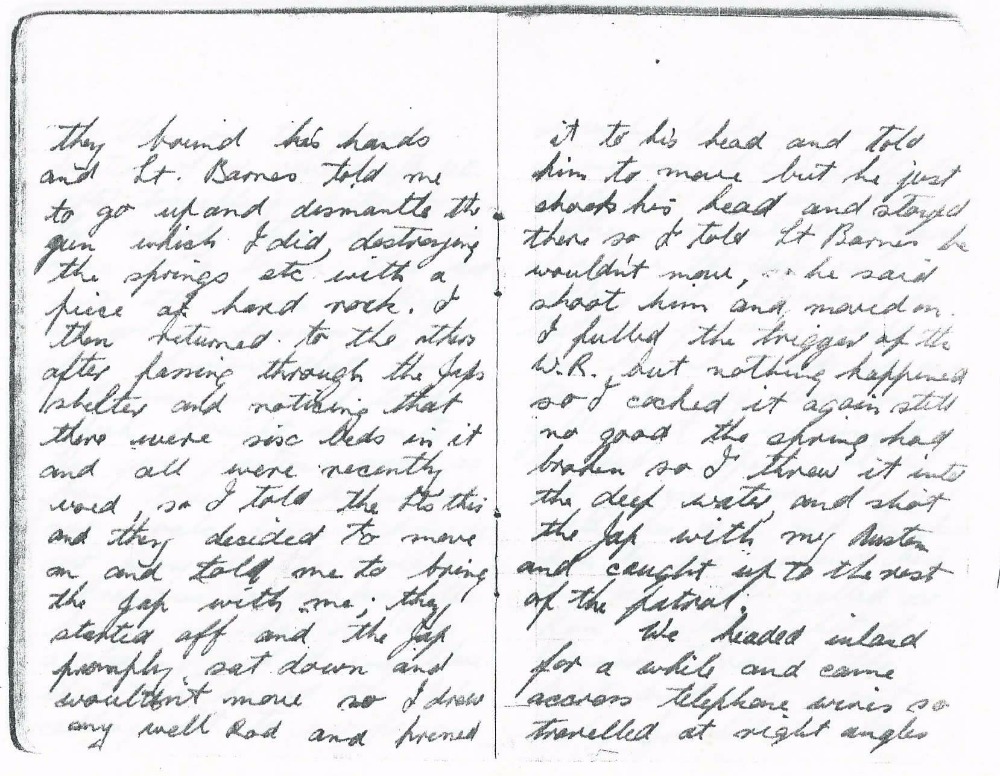 they bound his hands
and Lt. Barnes told me
to go up and dismantle the
gun which I did, destroying
the springs etc with a
piece of hard rock. I
then returned to the others
after passing through the Japs
shelter and noticing that
there were six beds in it
and all were recently
used, so I told the Lts this
and they decided to move
on and told me to bring
the Jap with me; they
started off and the Jap
promply sat down and
wouldtn't move so I drew
my well Rod and
it to his head and told
him to move but he just
shook his head and stayed
there so I told Lt Barnes he
wouldn't move, he said
shoot him and moved on.
I pulled the trigger of the
W.R. but nothing happened
so I cocked it again still
no good the spring had
broken so I threw it into
the deep water, and shot
the Jap with my Austen
and caught up to the rest
of the patrol.
We headed inland
for a while and came
accross telephone wires so
travelled at right angles